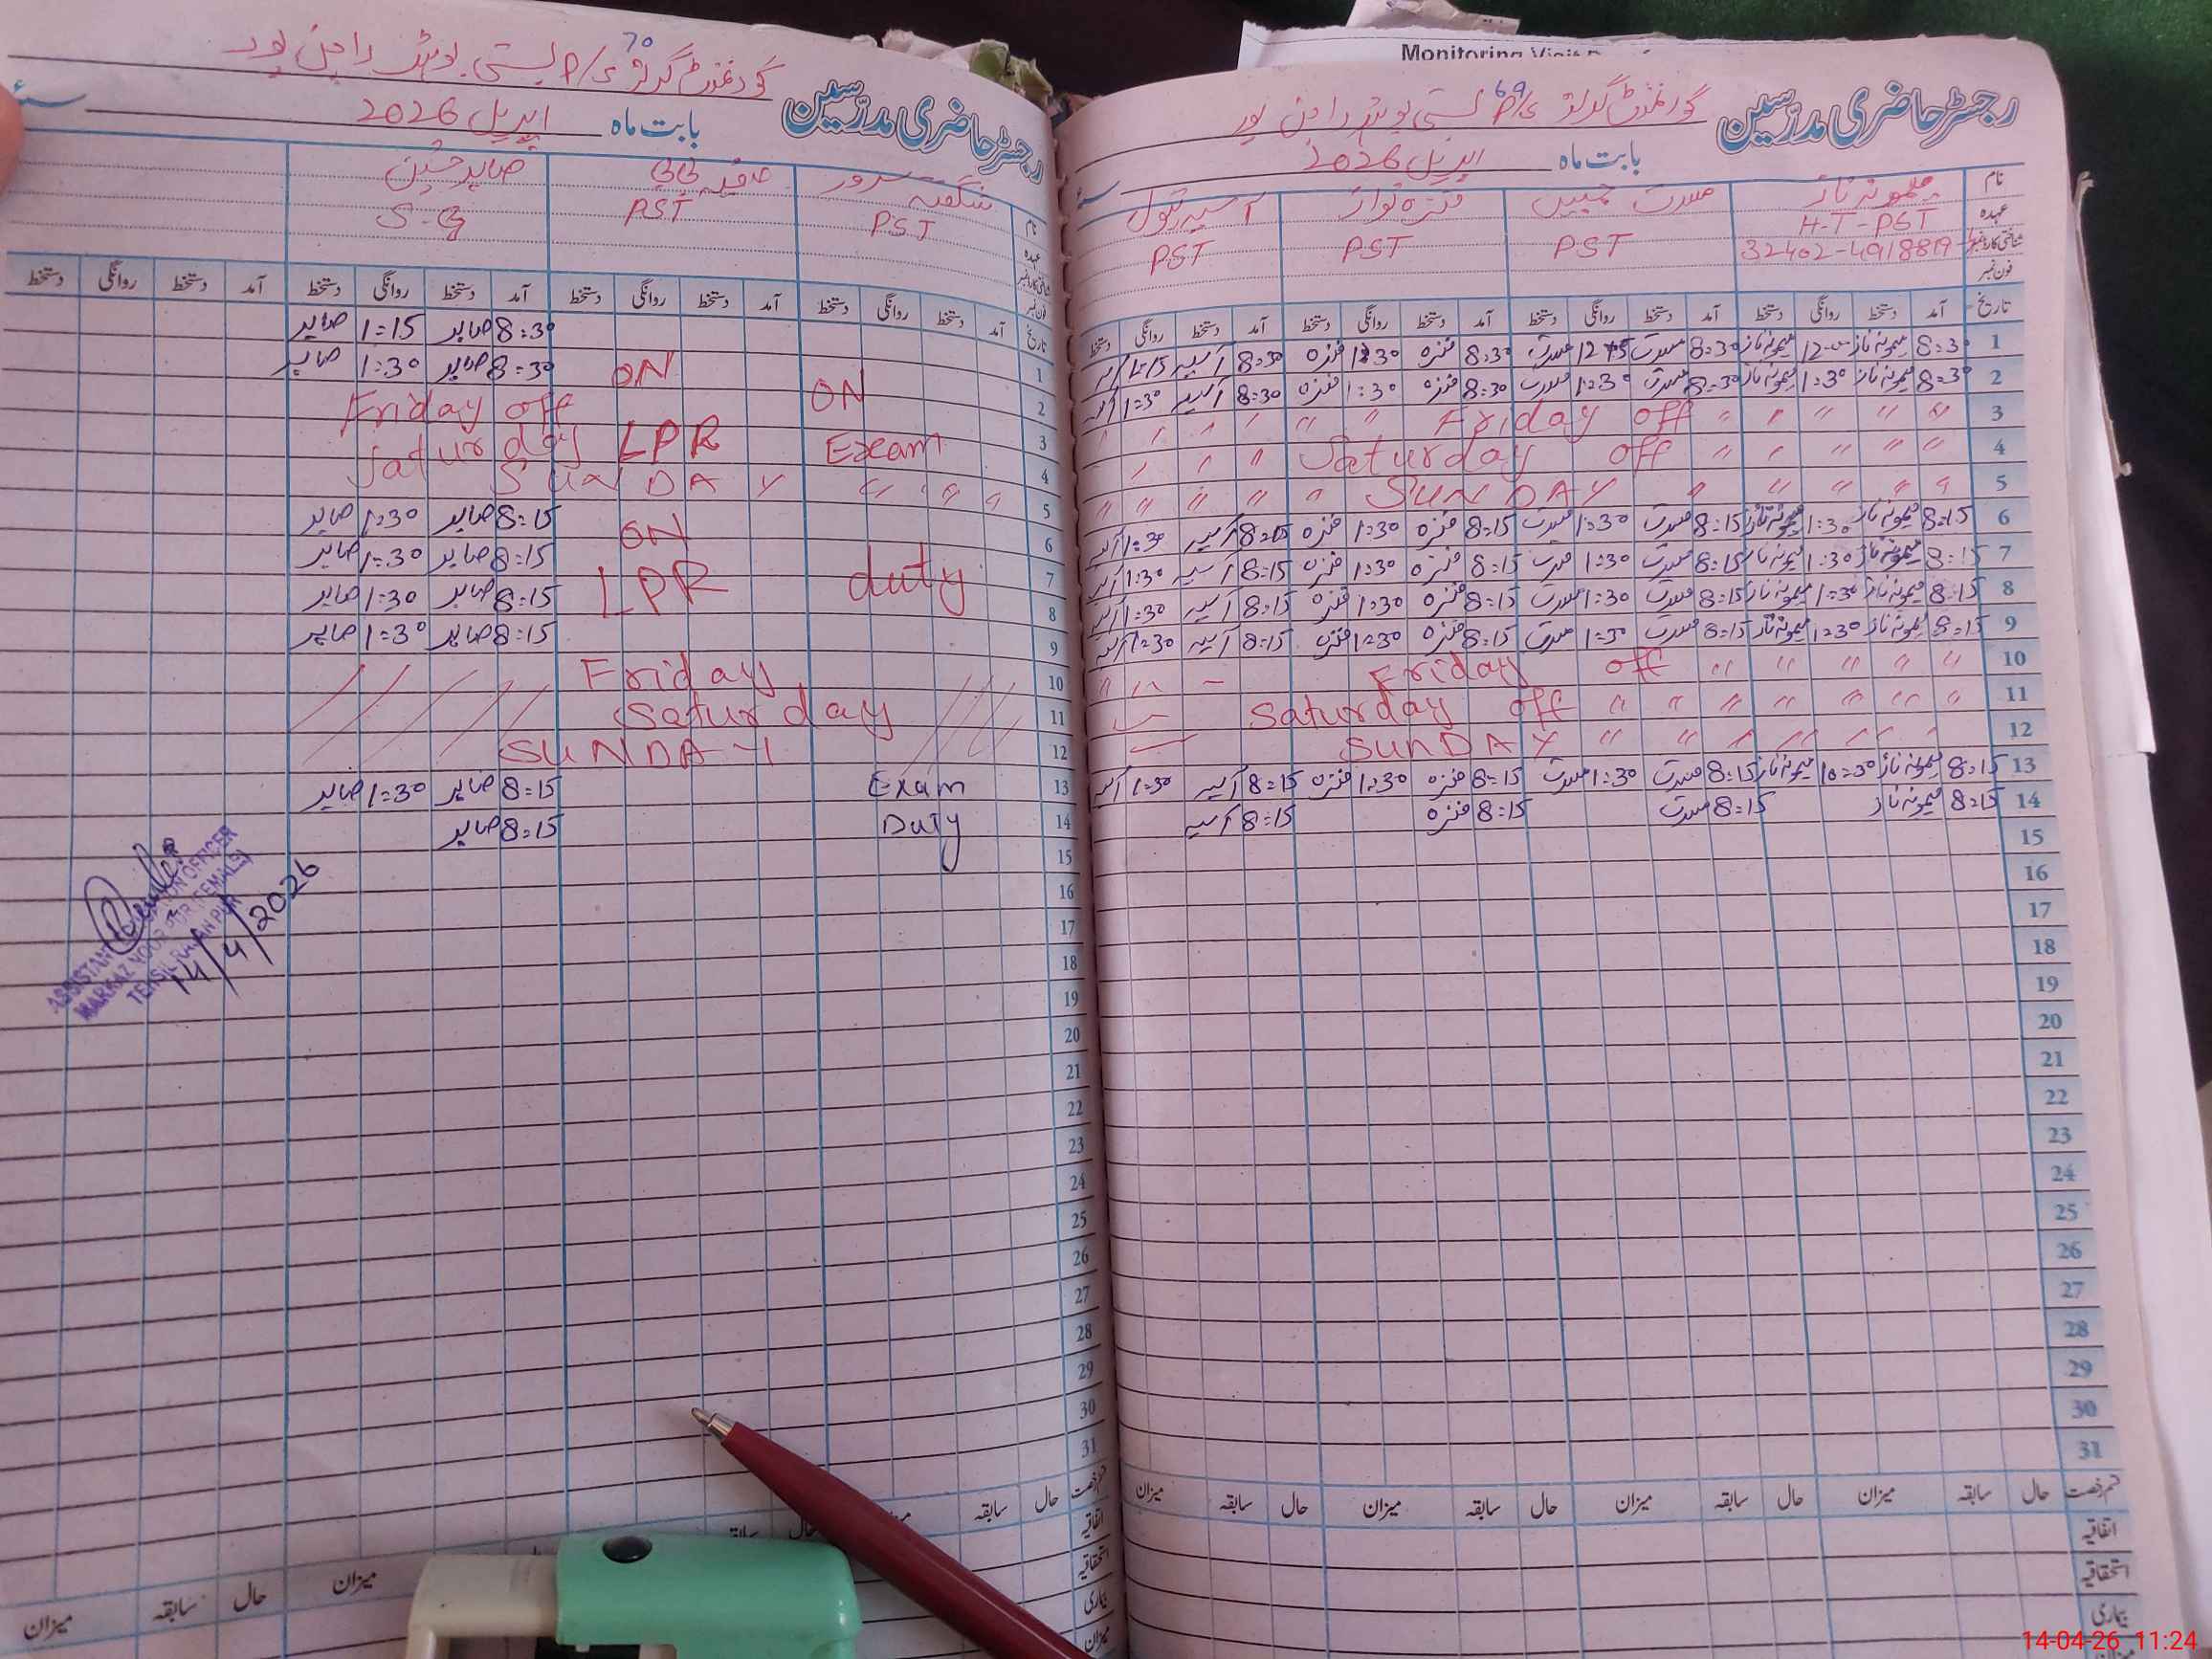 Monitoring Visit
رجسٹر حاضری مدرسین
گورنمنٹ گرلز P/S بستی بوہڑ راجن پور
69
بابت ماہ اپریل 2026 سنہ
نام میمونہ ناز مسرت جبیں فنزہ نواز آسیہ بتول
عہدہ H-T-PST PST PST PST
شناختی کارڈ نمبر 32402-4918819
فون نمبر
تاریخ آمد دستخط روانگی دستخط آمد دستخط روانگی دستخط آمد دستخط روانگی دستخط آمد دستخط روانگی دستخط
1 8:30 میمونہ ناز 12-00 میمونہ ناز 8:30 مسرت مسرت 8:30 فنزہ فنزہ 8:30 آسیہ
2 8:30 میمونہ ناز 1:30 میمونہ ناز 8:30 مسرت 1:30 مسرت 8:30 فنزہ 1:30 فنزہ 8:30 آسیہ 1:30 آسیہ
3 Friday off
4 Saturday off
5 SUNDAY
6 8:15 میمونہ ناز 1:30 میمونہ ناز 8:15 مسرت 1:30 مسرت 8:15 فنزہ 1:30 فنزہ 8:15 آسیہ 1:30 آسیہ
7 8:15 میمونہ ناز 1:30 میمونہ ناز 8:15 مسرت 1:30 مسرت 8:15 فنزہ 1:30 فنزہ 8:15 آسیہ 1:30 آسیہ
8 8:15 میمونہ ناز 1:30 میمونہ ناز 8:15 مسرت 1:30 مسرت 8:15 فنزہ 1:30 فنزہ 8:15 آسیہ 1:30 آسیہ
9 8:15 میمونہ ناز 1:30 میمونہ ناز 8:15 مسرت 1:30 مسرت 8:15 فنزہ 1:30 فنزہ 8:15 آسیہ 1:30 آسیہ
10 Friday off
11 Saturday off
12 SUNDAY
13 8:15 میمونہ ناز میمونہ ناز 8:15 مسرت 1:30 مسرت 8:15 فنزہ 1:30 فنزہ 8:15 آسیہ 1:30 آسیہ
14 8:15 میمونہ ناز 8:15 مسرت 8:15 فنزہ 8:15 آسیہ
15
16
17
18
19
20
21
22
23
24
25
26
27
28
29
30
31
قسم رخصت حال سابقہ میزان حال سابقہ میزان حال سابقہ میزان حال سابقہ میزان
اتفاقیہ
استحقاقیہ
بیماری
میزان
رجسٹر حاضری مدرسین
گورنمنٹ گرلز P/S بستی بوہڑ راجن پور
70
بابت ماہ اپریل 2026 سنہ
نام شگفتہ سرور صفیہ بی بی صابر حسین
عہدہ PST PST S-G
شناختی کارڈ نمبر
فون نمبر
تاریخ آمد دستخط روانگی دستخط آمد دستخط روانگی دستخط آمد دستخط روانگی دستخط آمد دستخط روانگی دستخط
1 8:30 صابر 1:15 صابر
2 ON ON 8:30 صابر 1:30 صابر
3 Friday off
4 Exam LPR Saturday
5 SUNDAY
6 ON 8:15 صابر 1:30 صابر
7 8:15 صابر 1:30 صابر
8 duty LPR 8:15 صابر 1:30 صابر
9 8:15 صابر 1:30 صابر
10 Friday
11 Saturday
12 SUNDAY
13 Exam 8:15 صابر 1:30 صابر
14 Duty 8:15 صابر
15
16
17
18
19
20
21
22
23
24
25
26
27
28
29
30
31
ASSISTANT EDUCATION OFFICER
MARKAZ NOOR PUR (FEMALE)
TEHSIL RAJANPUR
14/4/2026
قسم رخصت حال سابقہ میزان حال سابقہ میزان حال سابقہ میزان
اتفاقیہ
استحقاقیہ
بیماری
میزان
14-04-26 11:24